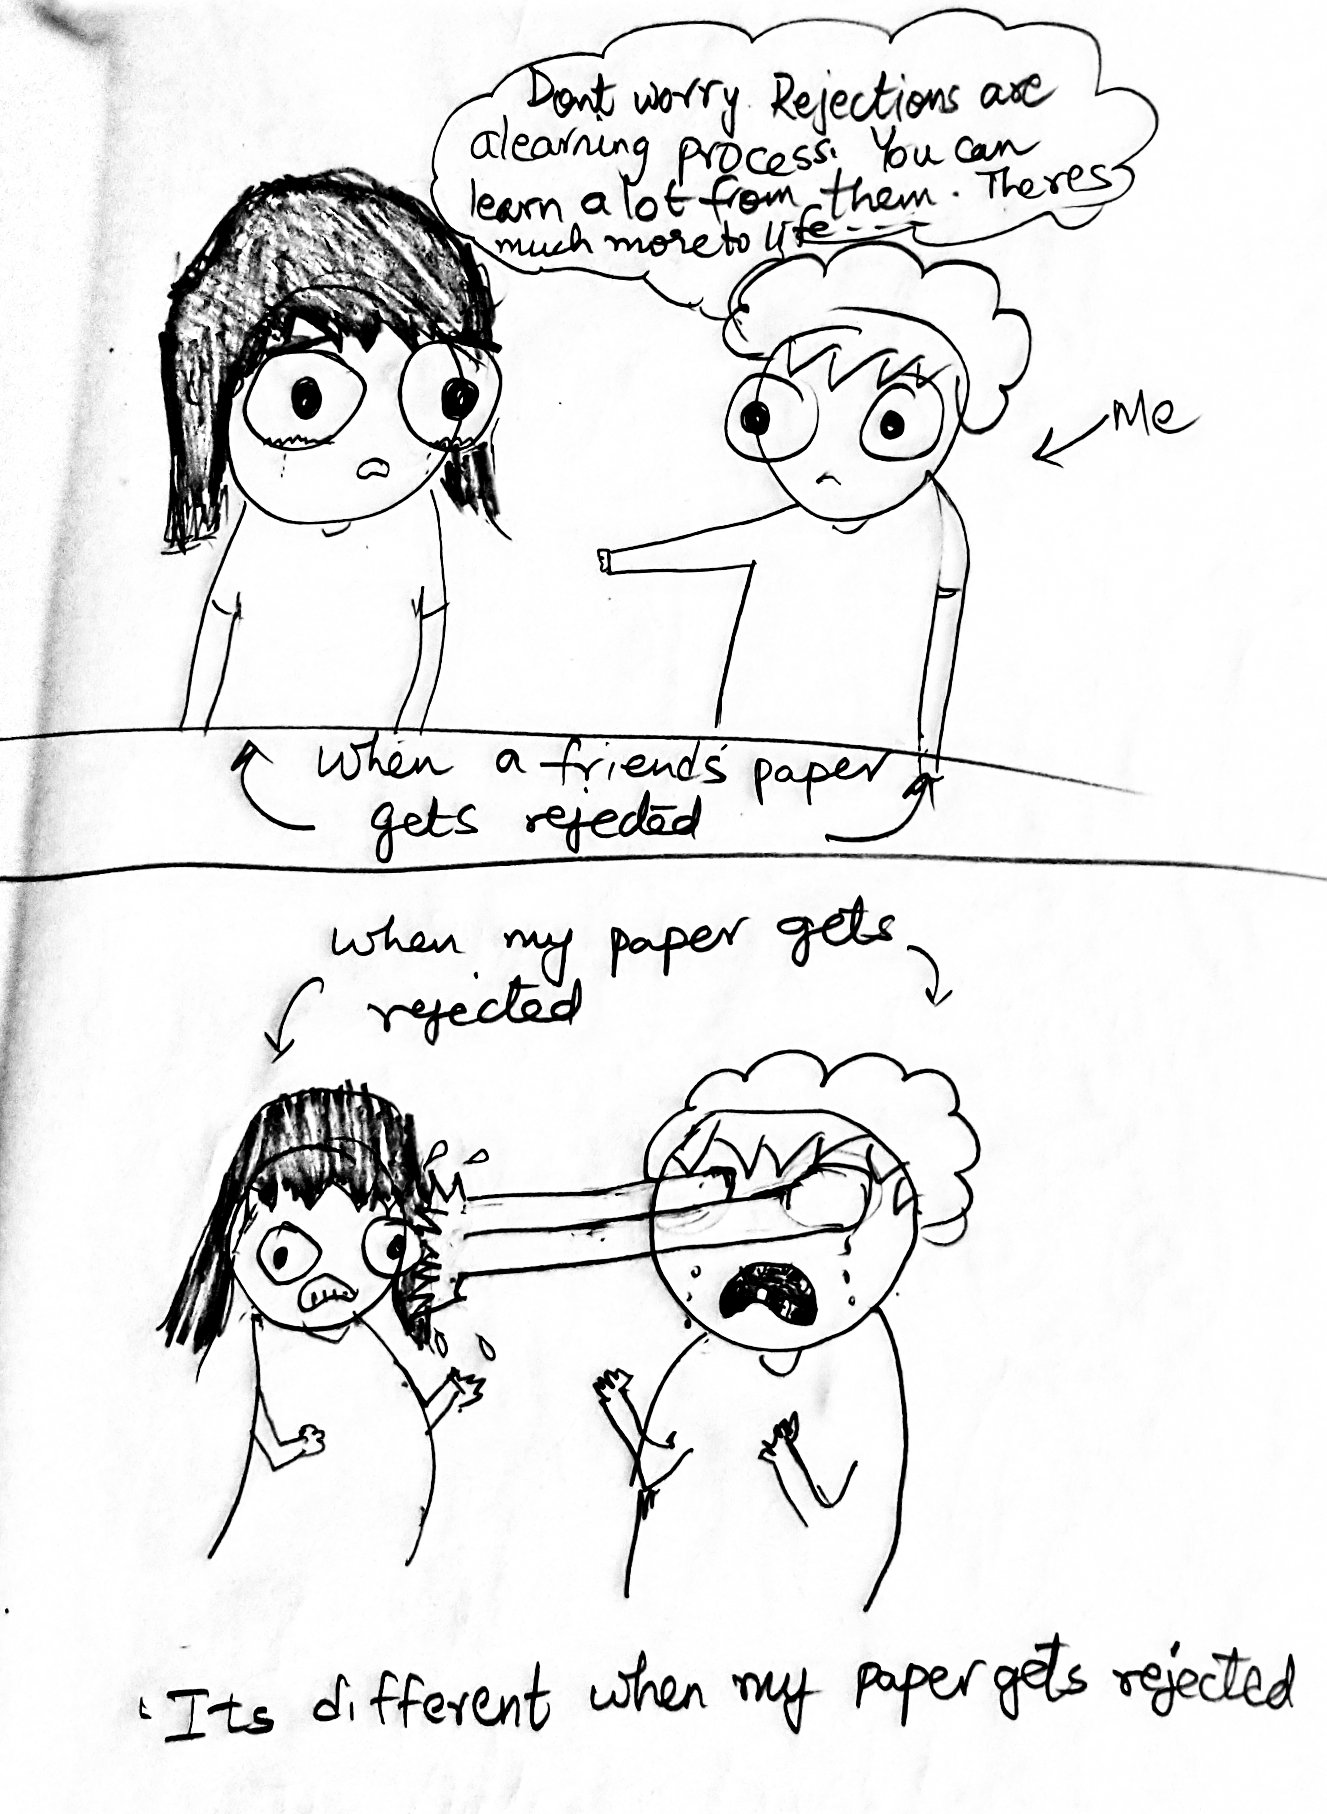 Dont worry. Rejections are
alearning process. You can
learn a lot from them. Theres
much more to life----
Me
when a friends' paper
gets rejected
when my paper gets
rejected
Its different when my paper gets rejected